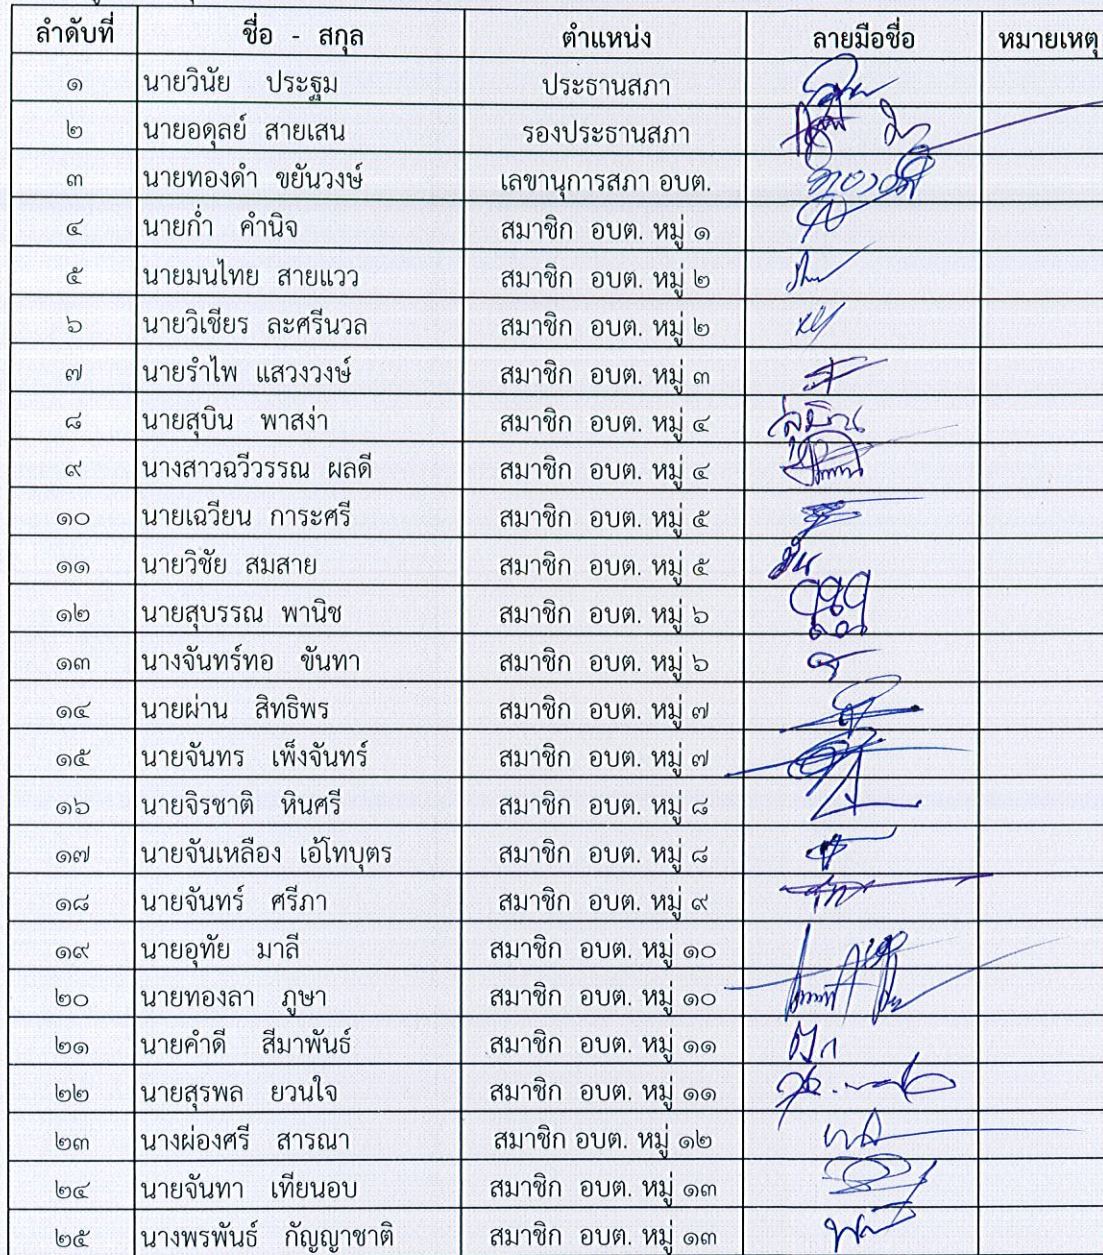 ลำดับที่ ชื่อ - สกุล ตำแหน่ง ลายมือชื่อ หมายเหตุ
๑ นายวินัย ประฐม ประธานสภา
๒ นายอดุลย์ สายเสน รองประธานสภา
๓ นายทองดำ ขยันวงษ์ เลขานุการสภา อบต.
๔ นายก่ำ คำนิจ สมาชิก อบต. หมู่ ๑
๕ นายมนไทย สายแวว สมาชิก อบต. หมู่ ๒
๖ นายวิเชียร ละศรีนวล สมาชิก อบต. หมู่ ๒
๗ นายรำไพ แสวงวงษ์ สมาชิก อบต. หมู่ ๓
๘ นายสุบิน พาสง่า สมาชิก อบต. หมู่ ๔ สุบิน
๙ นางสาวฉวีวรรณ ผลดี สมาชิก อบต. หมู่ ๔
๑๐ นายเฉวียน การะศรี สมาชิก อบต. หมู่ ๕
๑๑ นายวิชัย สมสาย สมาชิก อบต. หมู่ ๕
๑๒ นายสุบรรณ พานิช สมาชิก อบต. หมู่ ๖
๑๓ นางจันทร์ทอ ขันทา สมาชิก อบต. หมู่ ๖
๑๔ นายผ่าน สิทธิพร สมาชิก อบต. หมู่ ๗
๑๕ นายจันทร เพ็งจันทร์ สมาชิก อบต. หมู่ ๗
๑๖ นายจิรชาติ หินศรี สมาชิก อบต. หมู่ ๘
๑๗ นายจันเหลือง เอ้โทบุตร สมาชิก อบต. หมู่ ๘
๑๘ นายจันทร์ ศรีภา สมาชิก อบต. หมู่ ๙
๑๙ นายอุทัย มาลี สมาชิก อบต. หมู่ ๑๐
๒๐ นายทองลา ภูษา สมาชิก อบต. หมู่ ๑๐
๒๑ นายคำดี สีมาพันธ์ สมาชิก อบต. หมู่ ๑๑
๒๒ นายสุรพล ยวนใจ สมาชิก อบต. หมู่ ๑๑
๒๓ นางผ่องศรี สารณา สมาชิก อบต. หมู่ ๑๒
๒๔ นายจันทา เทียนอบ สมาชิก อบต. หมู่ ๑๓
๒๕ นางพรพันธ์ กัญญาชาติ สมาชิก อบต. หมู่ ๑๓